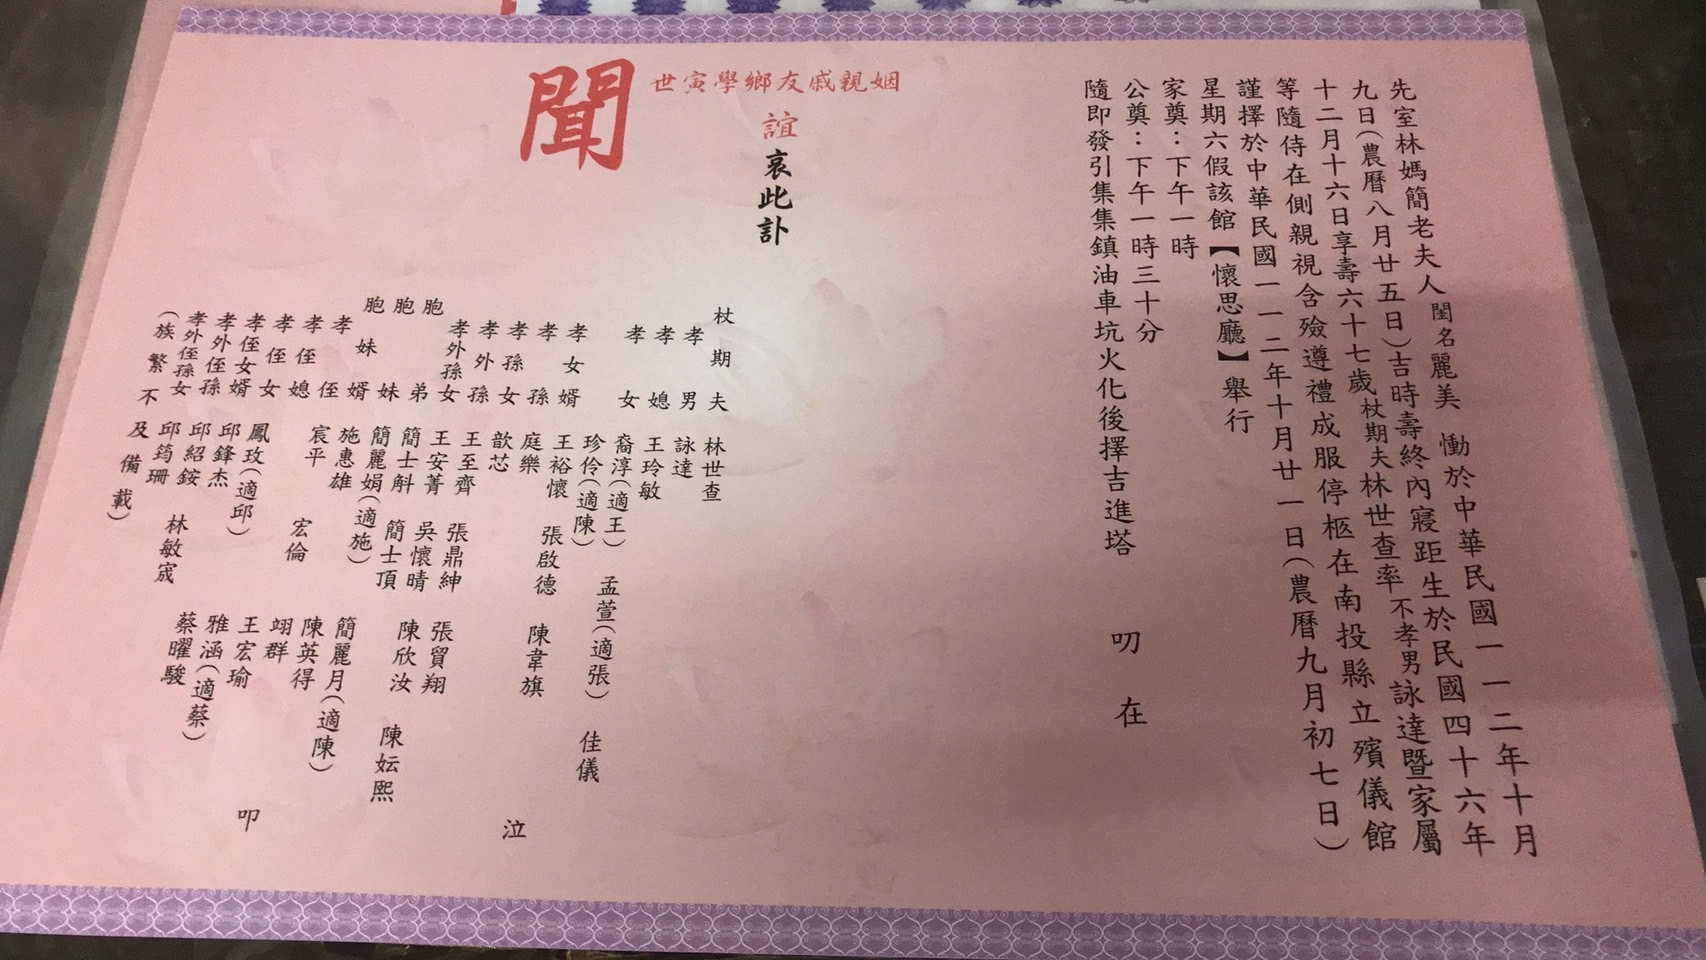 先室林媽簡老夫人閨名麗美　慟於中華民國一一二年十月
九日(農曆八月廿五日)吉時壽終內寢距生於民國四十六年
十二月十六日享壽六十七歲杖期夫林世查率不孝男詠達暨家屬
等隨侍在側親視含殮遵禮成服停柩在南投縣立殯儀館
謹擇於中華民國一一二年十月廿一日(農曆九月初七日)
星期六假該館【懷思廳】舉行
家奠：下午一時
公奠：下午一時三十分
隨即發引集集鎮油車坑火化後擇吉進塔
叨在
姻親戚友鄉學寅世
誼
哀此訃
聞
杖期夫　林世查
孝男　詠達
孝媳　王玲敏
孝女　裔淳(適王)　孟萱(適張)　佳儀
珍伶(適陳)
孝女婿　王裕懷　張啟德　陳韋旗
孝孫　庭樂
孝孫女　歆芯
孝外孫　王至齊　張鼎紳　張貿翔
孝外孫女　王安菁　吳懷晴　陳欣汝　陳妘熙
胞弟　簡士斛　簡士頂
胞妹　簡麗娟(適施)　簡麗月(適陳)
胞妹婿　施惠雄　陳英得
孝侄　宸平　宏倫　翊群
孝侄媳　王宏瑜
孝侄女　鳳玫(適邱)　雅涵(適蔡)
孝侄女婿　邱鋒杰　蔡曜駿
孝外侄孫　邱紹銨　林敏宬
孝外侄孫女　邱筠珊
(族繁不及備載)
泣
叩